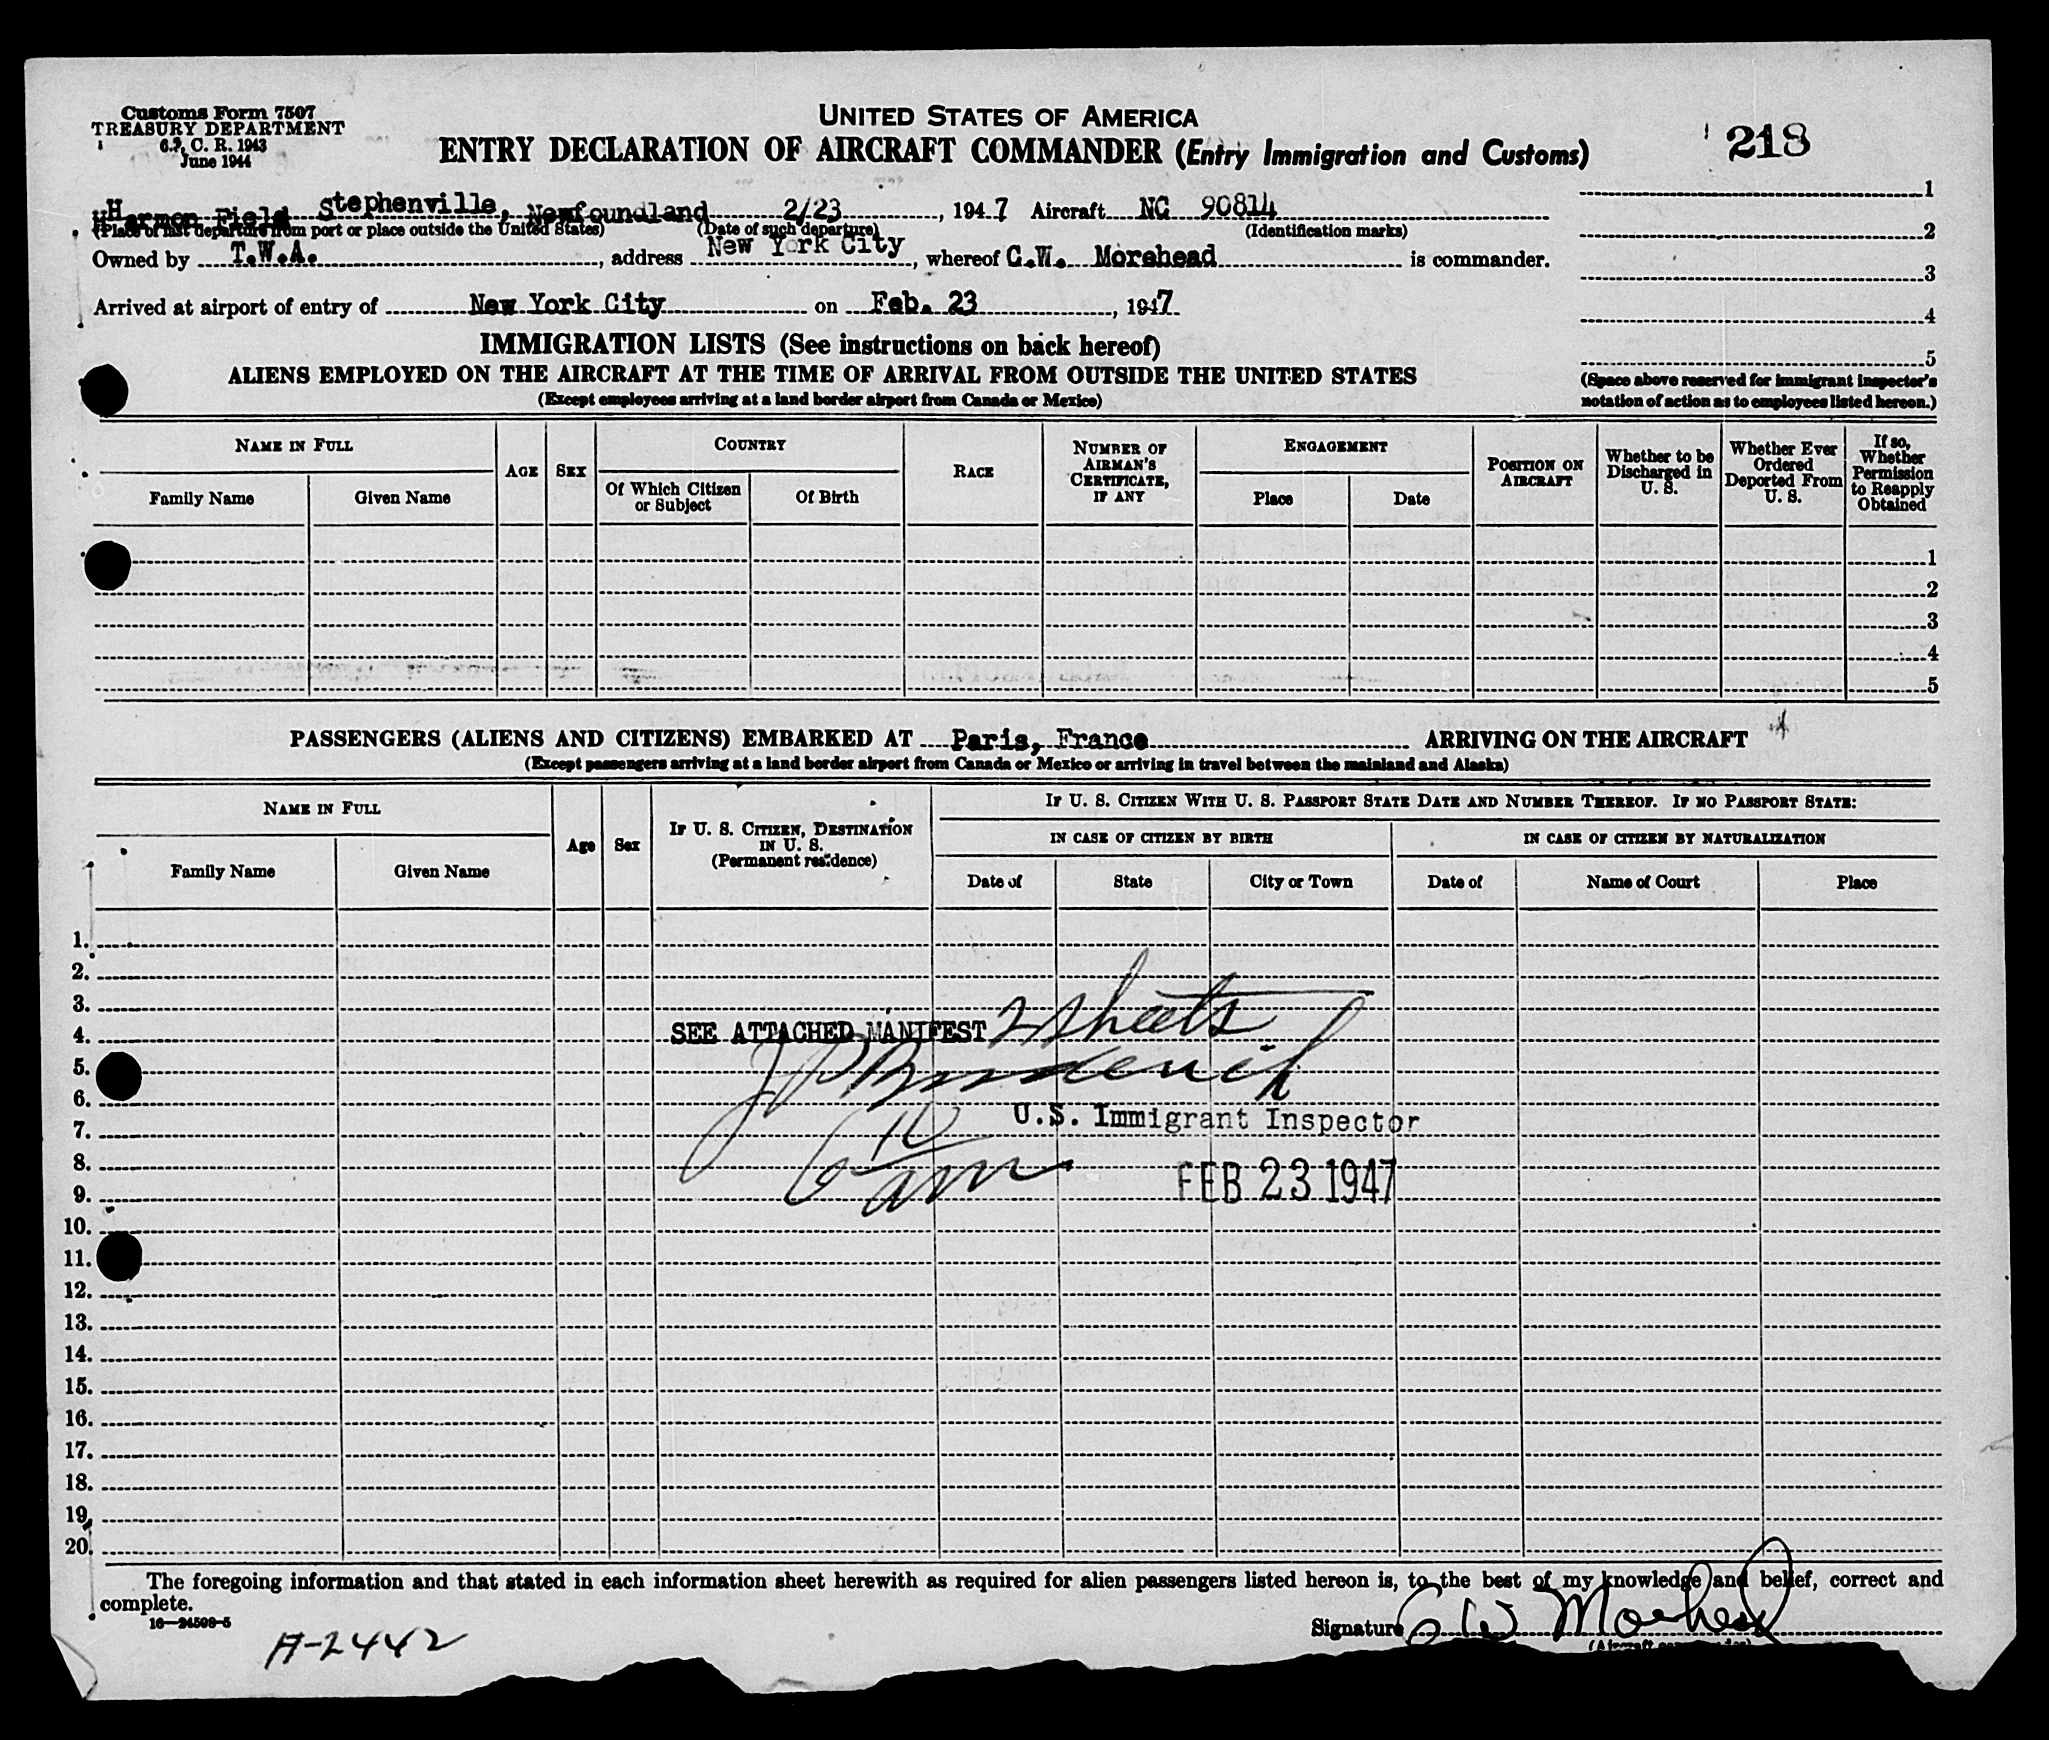 Customs Form 7507
TREASURY DEPARTMENT
C. R. 1943
June 1944
UNITED STATES OF AMERICA
ENTRY DECLARATION OF AIRCRAFT COMMANDER (Entry Immigration and Customs)
218
Harmon Field Stephenville, Newfoundland 2/23, 1947 Aircraft NC 90814
(Place of last departure from port or place outside the United States) (Date of such departure) (Identification marks)
Owned by T.W.A., address New York City, whereof C.W. Morehead is commander.
Arrived at airport of entry of New York City on Feb. 23, 1947
1
2
3
4
5
(Space above reserved for immigrant inspector's
notation of action as to employees listed hereon.)
IMMIGRATION LISTS (See instructions on back hereof)
ALIENS EMPLOYED ON THE AIRCRAFT AT THE TIME OF ARRIVAL FROM OUTSIDE THE UNITED STATES
(Except employees arriving at a land border airport from Canada or Mexico)
NAME IN FULL
Family Name
Given Name
AGE
SEX
COUNTRY
Of Which Citizen
or Subject
Of Birth
RACE
NUMBER OF
AIRMAN'S
CERTIFICATE,
IF ANY
ENGAGEMENT
Place
Date
POSITION ON
AIRCRAFT
Whether to be
Discharged in
U. S.
Whether Ever
Ordered
Deported From
U. S.
If so,
Whether
Permission
to Reapply
Obtained
1
2
3
4
5
PASSENGERS (ALIENS AND CITIZENS) EMBARKED AT Paris, France ARRIVING ON THE AIRCRAFT
(Except passengers arriving at a land border airport from Canada or Mexico or arriving in travel between the mainland and Alaska)
NAME IN FULL
Family Name
Given Name
Age
Sex
IF U. S. CITIZEN, DESTINATION
IN U. S.
(Permanent residence)
IF U. S. CITIZEN WITH U. S. PASSPORT STATE DATE AND NUMBER THEREOF. IF NO PASSPORT STATE:
IN CASE OF CITIZEN BY BIRTH
IN CASE OF CITIZEN BY NATURALIZATION
Date of
State
City or Town
Date of
Name of Court
Place
1.
2.
3.
4.
5.
6.
7.
8.
9.
10.
11.
12.
13.
14.
15.
16.
17.
18.
19.
20.
SEE ATTACHED MANIFEST 2 sheets
U.S. Immigrant Inspector
6 10 am
FEB 23 1947
The foregoing information and that stated in each information sheet herewith as required for alien passengers listed hereon is, to the best of my knowledge and belief, correct and
complete.
16—24598-5
A-2442
Signature C W Morehead
(Aircraft commander)